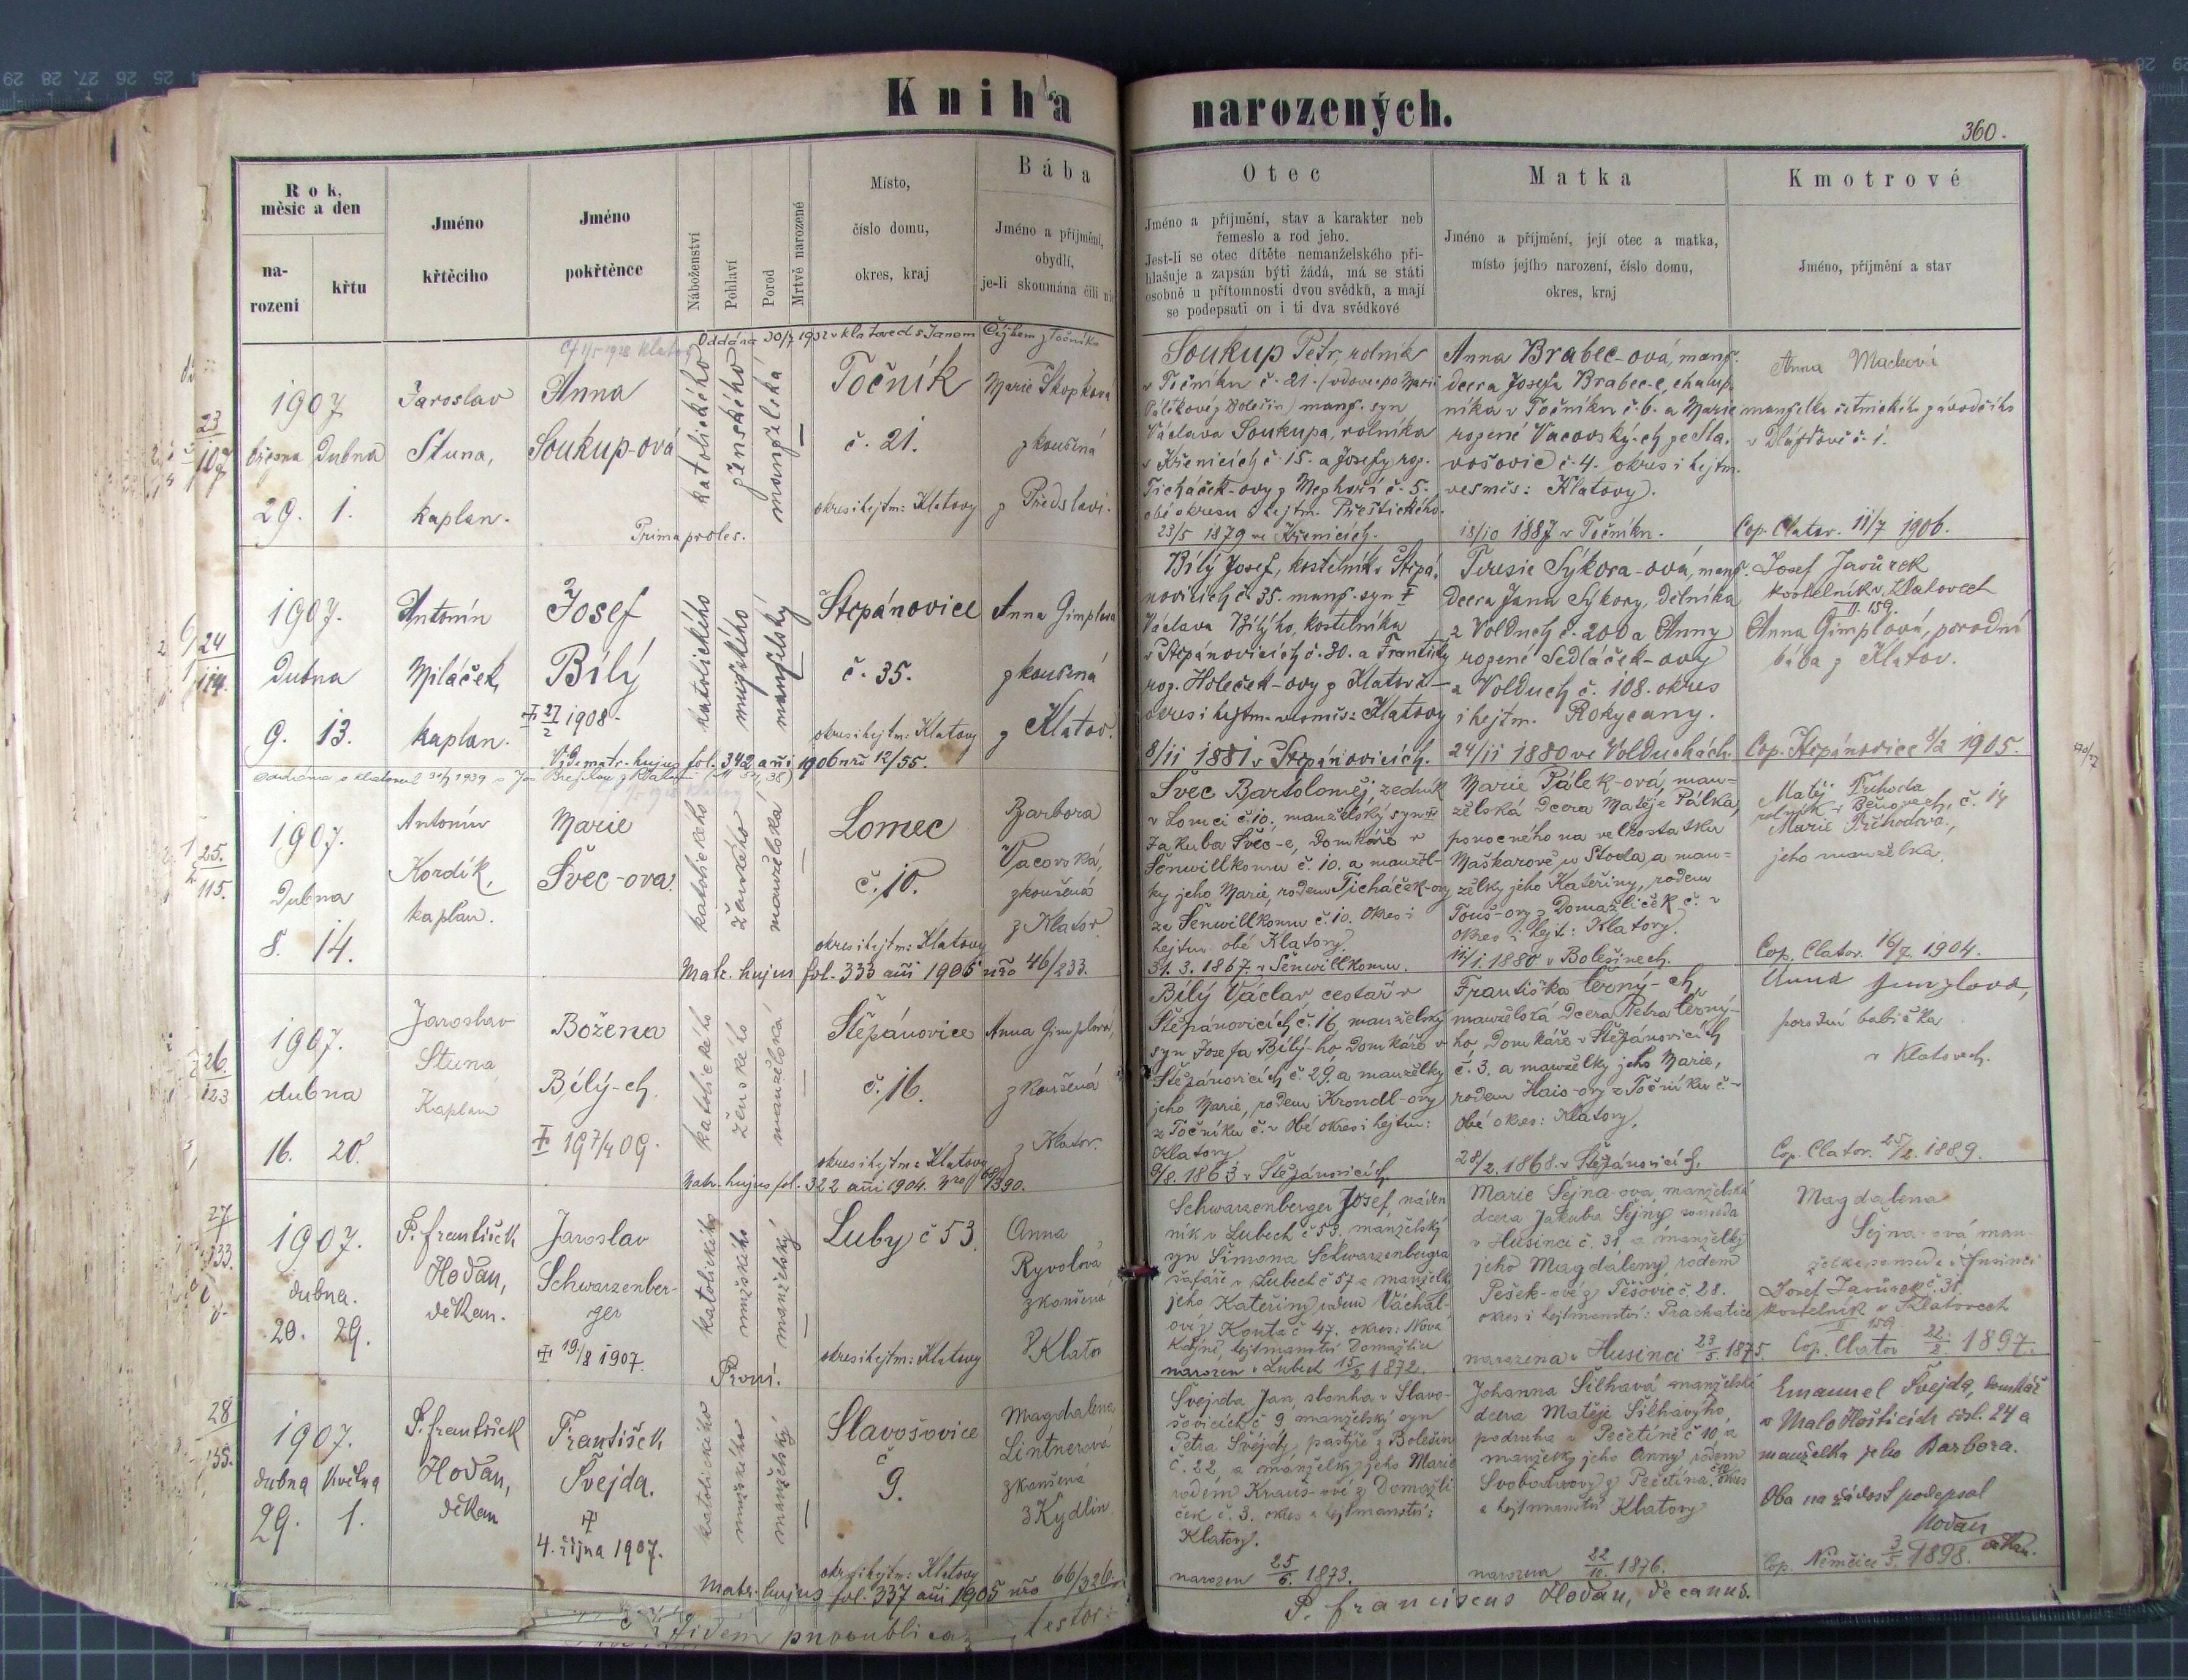 Kniha narozených.
360.
Rok, měsíc a den
narození
křtu
Jméno křtěcího
Jméno pokřtěnce
Náboženství
Pohlaví
Porod
Mrtvě narozené
Místo,
číslo domu,
okres, kraj
Bába
Jméno a příjmění,
obydlí,
je-li skoumána čili
Otec
Jméno a příjmění, stav a karakter neb
řemeslo a rod jeho.
Jest-li se otec dítěte nemanželského při-
hlašuje a zapsán býti žádá, má se státi
osobně u přítomnosti dvou svědků, a mají
se podepsati on i ti dva svědkové
Matka
Jméno a příjmění, její otec a matka,
místo jejího narození, číslo domu,
okres, kraj
Kmotrové
Jméno, příjmění a stav
23
107
1907
března Dubna
29. 1.
Jaroslav
Stuna,
kaplan.
Anna
Soukup-ová
Prima proles.
katolického
ženského
manželská
Točník
č. 21.
okres i hejtm: Klatovy
Marie Skopková
zkoušená
z Předslavi.
Soukup Petr, rolník
v Točníku č. 21.
manž. syn
Václava Soukupa, rolníka
v Křenicích č. 15. a Josefy roz.
Ticháček-ovy z Mezhoří č. 5.
obé okresu i hejtm. Přeštického.
23/5 1879 ve Křenicích.
Anna Brabec-ová, manž.
dcera Josefa Brabec-e, chalup-
níka v Točníku č. 6. a Marie
rozené Vacovský-ch ze Sla-
vošovic č. 4. okres i hejtm.
vesměs: Klatovy.
18/10 1887 v Točníku.
Anna Macková
manželka četnického závodčího
č. 1.
Cop. Clatov. 11/7 1906.
24
114.
1907.
Dubna
9. 13.
Antonín
Miláček,
kaplan.
Josef
Bílý
1908
katolického
mužského
manželský
Štěpánovice
č. 35.
okres i hejtm: Klatovy
Vide matr. hujus fol. 342 anni 1906 nro 12/55.
Anna Gimplova
zkoušená
z Klatov.
Bílý Josef, kostelník v Štěpá-
novicích č. 35. manž. syn
Václava Bílýho, kostelníka
v Štěpánovicích č. 30. a Františky
roz. Holeček-ovy z Klatov č. –
okres i hejtm. vesměs: Klatovy
8/11 1881 v Štěpánovicích.
Teresie Sýkora-ová, manž.
dcera Jana Sýkory, dělníka
z Volduch č. 200 a Anny
rozené Sedláček-ovy
z Volduch č. 108. okres
i hejtm. Rokycany.
24/11 1880 ve Volduchách.
Josef Javůrek
kostelník v Klatovech
II. 159.
Anna Gimplová, porodní
bába z Klatov.
Cop. Štěpánovice 1905.
25.
115.
1907.
Dubna
8. 14.
Antonín
Kordík,
kaplan.
Marie
Švec-ova.
katolického
ženského
manželská
Lomec
č. 10.
okres i hejtm: Klatovy
Matr. hujus fol. 333 anni 1905 nro 46/233.
Barbora
Vacovská,
zkoušená
z Klatov.
Švec Bartoloměj, zedník
v Lomci č. 10., manželský syn
Jakuba Švec-e, Domkáře v
Šenwillkomu č. 10. a manžel-
ky jeho Marie, rodem Ticháček-ovy
ze Šenwillkomu č. 10. Okres i
hejtm. obé Klatovy.
31. 3. 1867 v Šenwillkomu.
Marie Pálek-ová, man-
želská dcera Matěje Pálka,
ponocného na velkostatku
Maškarově u Stoda a man-
želky jeho Kateřiny, rodem
Touš-ovy z Domažliček č. v
okres i hejt: Klatovy.
12/1. 1880 v Bolešinech.
Matěj Příhoda
rolník č. 14
Marie Příhodova,
jeho manželka.
Cop. Clatov. 16/7. 1904.
26.
123
1907.
dubna
16. 20.
Jaroslav
Stuna
Kaplan
Božena
Bílý-ch.
katolického
ženského
manželská
Štěpánovice
č. 16.
okres i hejtm: Klatovy
Matr. hujus fol. 322 anni 1904.
Anna Gimplová,
zkoušená
z Klatov.
Bílý Václav cestář v
Štěpánovicích č. 16, manželský
syn Josefa Bílý-ho, Domkáře v
Štěpánovicích č. 29. a manželky
jeho Marie, rodem Krondl-ovy
z Točníku č. v Obé okres i hejtm:
Klatovy.
9/8. 1863 v Štěpánovicích.
Františka Černý-ch,
manželská dcera Petra Černý-
ho, Domkáře v Štěpánovicích
č. 3. a manželky jeho Marie,
rodem Hais-ovy z Točníku č. –
Obé okres: Klatovy.
28/2. 1868. v Štěpánovicích.
Anna Gimplova,
porodní babička
v Klatovech.
Cop. Clator. 25/2. 1889.
27
133.
1907.
dubna.
20. 29.
P. František
Hodan,
děkan.
Jaroslav
Schwarzenber-
ger
19/8 1907.
katolického
mužského
manželský
První.
Luby č 53.
okres i hejtm: Klatovy
Anna
Ryvolová
zkoušená
z Klatov
Schwarzenberger Josef, náden-
ník v Lubech č 53. manželský
syn Šimona Schwarzenbergra
šafáře v Lubech č 57 a manželky
jeho Kateřiny rodem Váchal-
ové z Kouta č 47. okres: Nová
Kdyně, hejtmanství Domažlice
narozen v Lubech 15/2 1872.
Marie Šejna-ova, manželská
dcera Jakuba Šejny, souseda
v Husinci č. 31 a manželky
jeho Magdaleny, rodem
Pešek-ové z Těšovic č. 28.
okres i hejtmanství: Prachatice
narozena v Husinci 23/5. 1875.
Magdalena
Šejna-ová man-
želka souseda v Husinci
č. 31.
Josef Javůrek
kostelník v Klatovech
II 159.
Cop. Clatov 22/2. 1897.
28
135.
1907.
dubna Května
29. 1.
P. František
Hodan,
děkan
František
Švejda.
4. října 1907.
katolického
mužského
manželský
Slavošovice
č
9.
okres i hejtm: Klatovy
Matr. hujus fol. 337 anni 1905 nro 66/326.
Magdalena
Lintnerová
zkoušená
z Kydlin.
Švejda Jan, slouha v Slavo-
šovicích č 9 manželský syn
Petra Švejdy, pastýře z Bolešin
č. 22 a manželky jeho Marie
rodem Kraus-ové z Domažli-
ček č. 3. okres a hejtmanství:
Klatovy.
narozen 25/6. 1873.
Johanna Šilhavá manželská
dcera Matěje Šilhavýho,
podruha v Pečetíně č 10, a
manželky jeho Anny, rodem
Svobodovy z Pečetína č 10 okres
a hejtmanství Klatovy
narozena 22/10. 1876.
Emanuel Švejda, domkář
v Malo Hošticích čísl. 24 a
manželka jeho Barbora.
Oba na žádost podepsal
Hodan
děkan.
Cop. Němčice 3/5. 1898.
P. Franciscus Hodan, decanus.